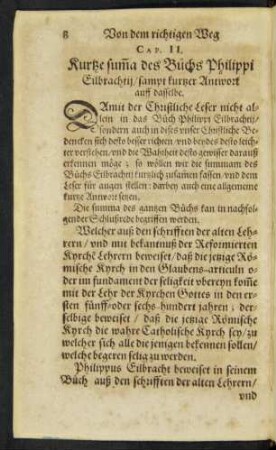 8 Von dem richtigen Weg
CAP. II.
Kurtze sum̃a des Buͤchs Philippi
Eilbrachtij / sampt kurtzer Antwort
auff dasselbe.
DAmit der Christliche Leser nicht al-
lein in das Buͤch Philippi Eilbrachtij /
sondern auch in dises vnser Christliche Be-
dencken sich desto besser richten / vnd beydes desto leich-
ter verstehen / vnd die Warheit desto gewisser darauß
erkennen moͤge ; so woͤllen wir die summam des
Buͤchs Eilbrachtij kurtzlich zusamen fassen / vnd dem
Leser fuͤr augen stellen : darbey auch eine allgemeine
kurtze Antwort setzen.
Die summa des gantzen Buͤchs kan in nachfol-
gender Schlußrede begriffen werden.
Welcher auß den schrifften der alten Leh-
rern / vnd mit bekantnuß der Reformierten
Kyrchẽ Lehrern beweiset / daß die jetzige Roͤ-
mische Kyrch in den Glaubens-articuln o-
der im fundament der seligkeit vbereyn kom̃e
mit der Lehr der Kyrchen Gottes in den er-
sten fuͤnff- oder sechs-hundert jahren ; der-
selbige beweiset / daß die jetzige Roͤmische
Kyrch die wahre Catholische Kyrch sey / zu
welcher sich alle die jenigen bekennen sollen /
welche begeren selig zu werden.
Philippus Eilbracht beweiset in seinem
Buͤch auß den schrifften der alten Lehrern /
vnd